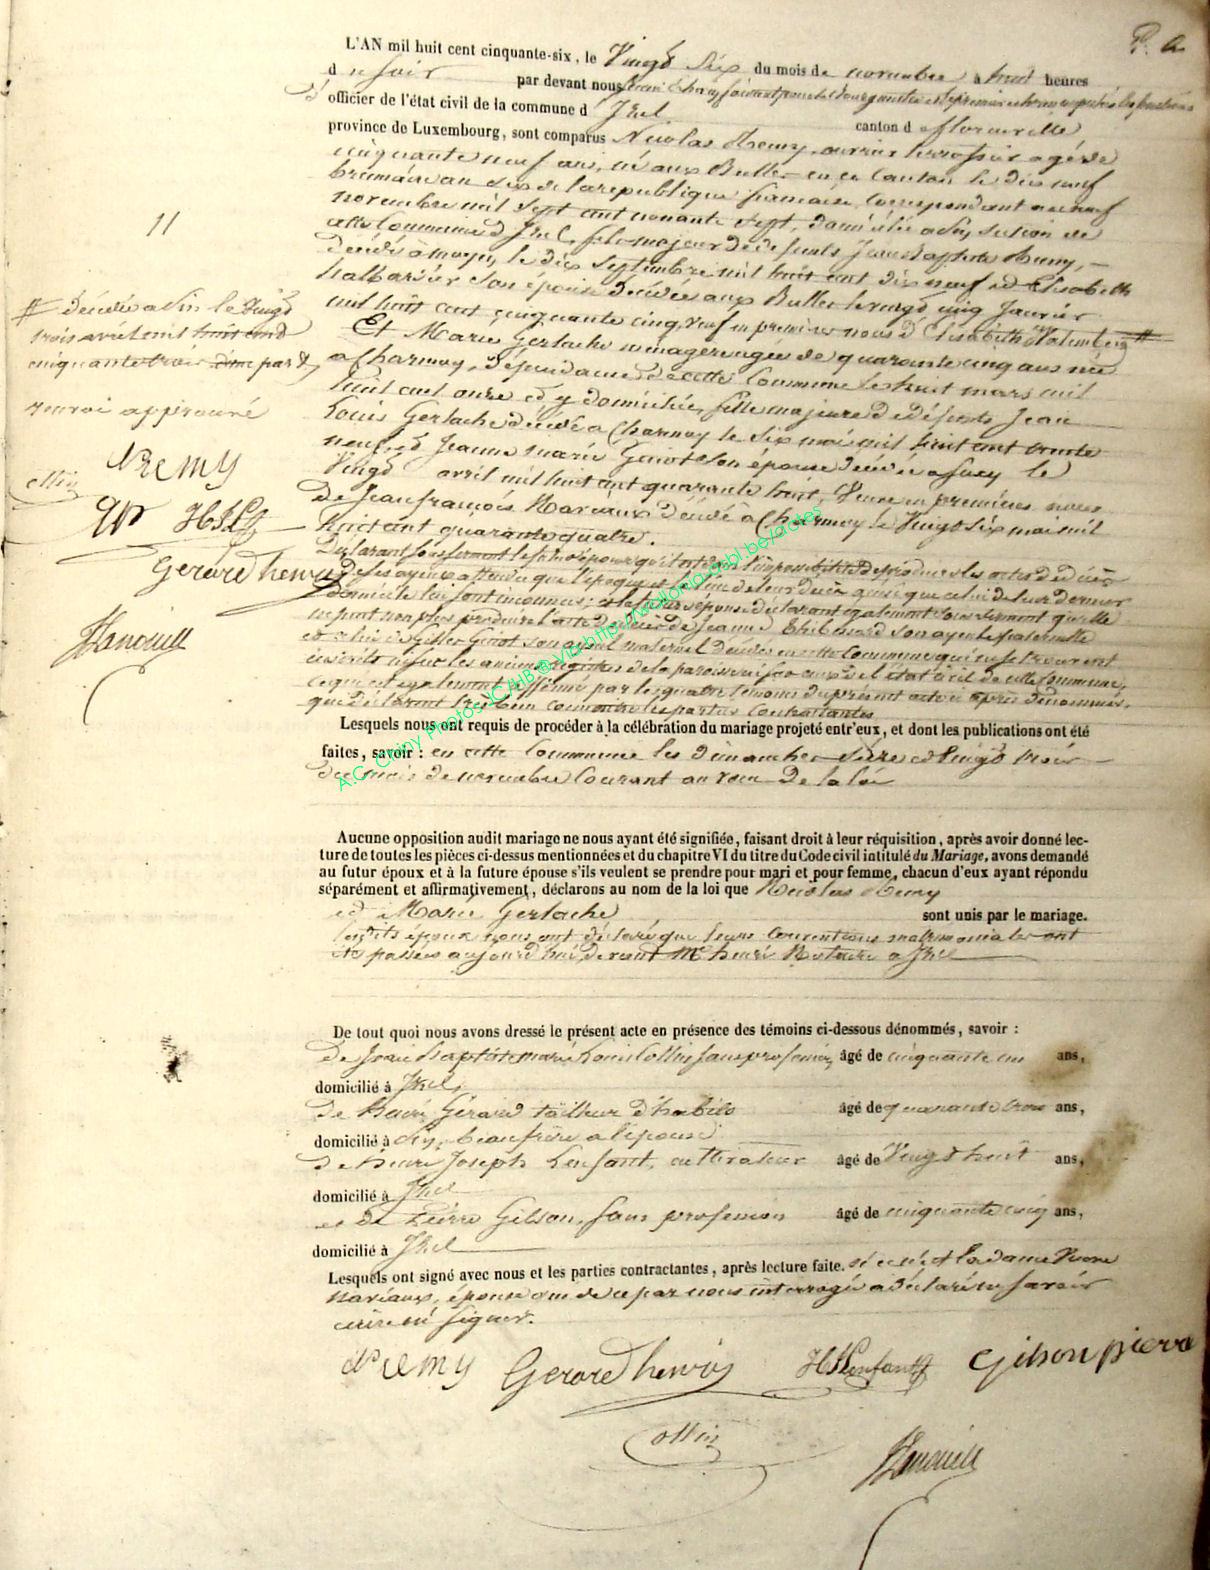 P. a
L'AN mil huit cent cinquante-six, le Vingt Six du mois de novembre à huit heures
d u soir par devant nous
officier de l'état civil de la commune d' Izel canton de florenville
province de Luxembourg, sont comparus Nicolas Remy ouvrier terrassier agé de
cinquante neuf ans, né aux Bulles en ce Canton le dix neuf
brumaire an six de la republique francaise Correspondant au neuf
novembre mil sept cent nonante sept, domicilié a section de
cette Commune d'Izel, fils majeur de defunts Jean Baptiste Remy,
décédé à moyen, le dix Septembre mil huit cent dix neuf et Elisabeth
son épouse décédée aux Bulles le vingt cinq Janvier
mil huit cent cinquante cinq, veuf en premières noces d'Elisabeth #
Et Marie Gerlache ménagère agée de quarante cinq ans née
a Charmoy, dépendance de cette Commune le huit mars mil
huit cent onze et y domiciliée, fille majeure de défunts Jean
Louis Gerlache décédé a Charmoy le Six mai mil huit cent trente
neuf et Jeanne marie Goriot son épouse décédée a le
Vingt avril mil huit cent quarante huit, Veuve en premières noces
de Jean françois Mariaux décédé à Charmoy le Vingt Six mai mil
huit cent quarante quatre.
11
# décédée a le Vingt
trois avril mil huit cent
cinquante trois par d
renvoi approuvé
NREMY
Collin
GP HJLf
Gerard henri
Déclarant sous serment le futur époux qu'il est dans l'impossibilité de produire les actes de décès
de ses ayeux attendu que l'époque et le lieu de leur décès ainsi que celui de leur dernier
domicile lui sont inconnus; et la future épouse déclarant également sous serment qu'elle
ne peut non plus produire l'acte de décès de Jeanne son ayeule paternelle
et celui de Goriot son ayeul maternel décédés en cette Commune qui ne se trouvent
inscrits ni sur les anciens registres de la paroisse ni sur ceux de l'état civil de cette Commune,
ce qui est également affirmé par les quatre témoins du présent acte ci après dénommés,
qui déclarent très bien connaître les parties Contractantes
A.C. Chiny Photos JC/HB @ Via http://wallonia-asbl.be/actes
Lesquels nous ont requis de procéder à la célébration du mariage projeté entr'eux, et dont les publications ont été
faites, savoir : en cette Commune les dimanches Seize et Vingt trois
du mois de novembre Courant au voeu de la loi
Aucune opposition audit mariage ne nous ayant été signifiée, faisant droit à leur réquisition, après avoir donné lec-
ture de toutes les pièces ci-dessus mentionnées et du chapitre VI du titre du Code civil intitulé du Mariage, avons demandé
au futur époux et à la future épouse s'ils veulent se prendre pour mari et pour femme, chacun d'eux ayant répondu
séparément et affirmativement, déclarons au nom de la loi que Nicolas Remy
et Marie Gerlache sont unis par le mariage.
Lesdits époux nous ont déclaré que leurs Conventions matrimoniales ont
été passées aujourd'hui devant Me henri Notaire a Izel
De tout quoi nous avons dressé le présent acte en présence des témoins ci-dessous dénommés, savoir :
De Jean Baptiste marie Louis Collin, sans profession, âgé de cinquante un ans,
domicilié à Izel,
De henri Gérard tailleur d'habits âgé de quarante trois ans,
domicilié à beau frère a l'épouse
De henri Joseph Lenfant, cultivateur âgé de Vingt huit ans,
domicilié à Izel
et de Pierre Gilson, sans profession âgé de cinquante cinq ans,
domicilié à Izel
Lesquels ont signé avec nous et les parties contractantes, après lecture faite. si ce n'est la dame Veuve
Mariaux, épouse qui de ce par nous interrogée a déclaré ne savoir
écrire ni signer.
N REMY Gerard henri HJLenfant Gilson pierre
Collin